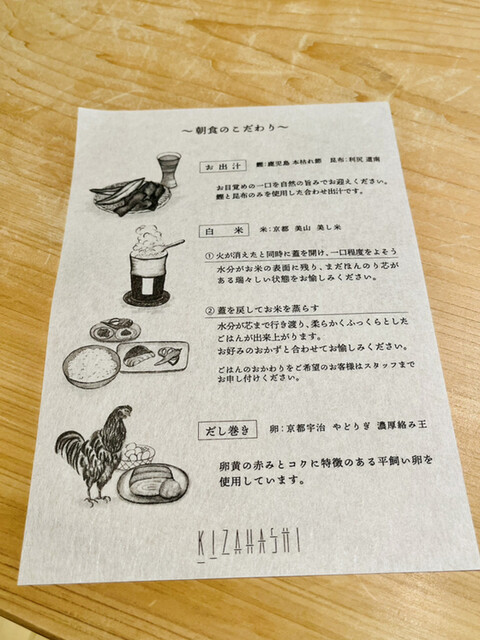 ～朝食のこだわり～
お出汁 鰹：鹿児島 本枯れ節 昆布：利尻 道南
お目覚めの一口を自然の旨みでお迎えください。
鰹と昆布のみを使用した合わせ出汁です。
白米 米：京都 美山 美し米
① 火が消えたと同時に蓋を開け、一口程度をよそう
水分がお米の表面に残り、まだほんのり芯が
ある瑞々しい状態をお愉しみください。
② 蓋を戻してお米を蒸らす
水分が芯まで行き渡り、柔らかくふっくらとした
ごはんが出来上がります。
お好みのおかずと合わせてお愉しみください。
ごはんのおかわりをご希望のお客様はスタッフまで
お申し付けください。
だし巻き 卵：京都宇治 やどりぎ 濃厚絡み王
卵黄の赤みとコクに特徴のある平飼い卵を
使用しています。
KIZAHASHI